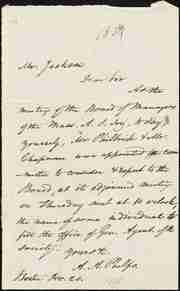 1839
Mr. Jackson
Dear Sir
At the
meeting of the Board of Managers
of the Mass. A. S. Soc. to day,
yourself, Mr Philbrick & Mr.
Chapman were appointed a com-
mittee to consider & report to the
Board, at its adjourned meeting
on Thursday next at 10 oclock,
the name of some individual to
fill the office of Gen. Agent of the
society.
Yours &c
A. A. Phelps
Boston Nov. 20.